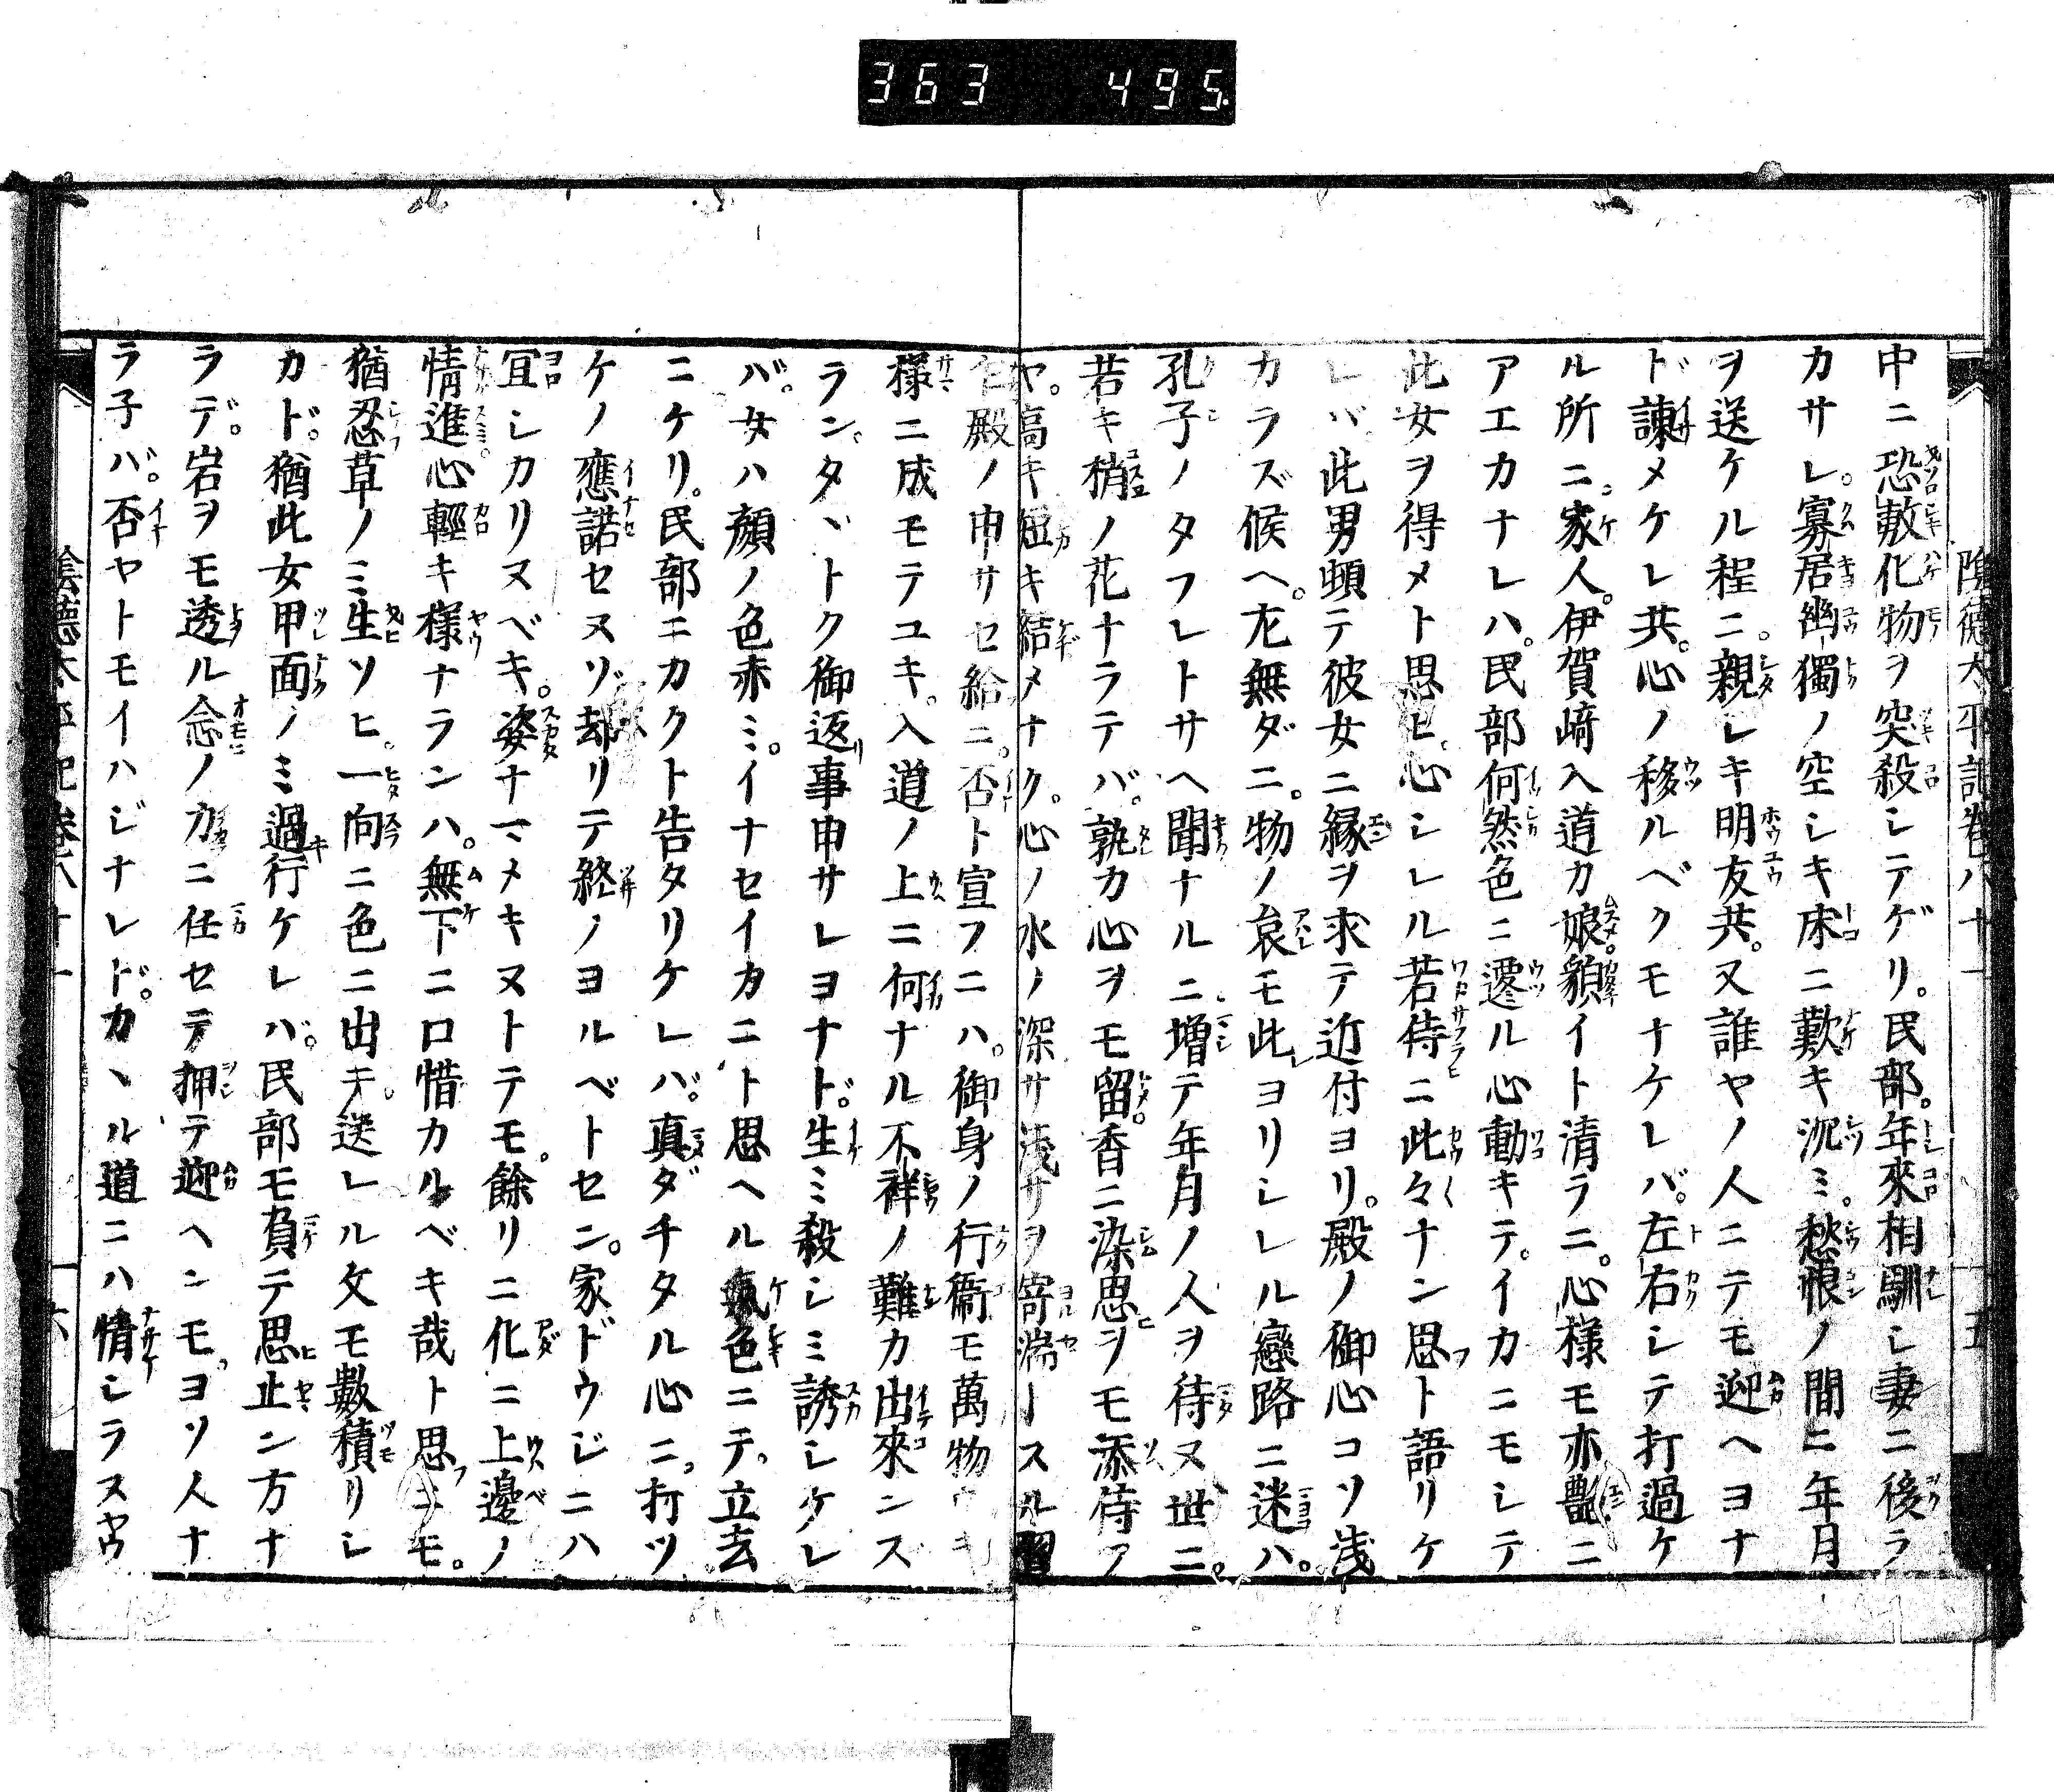 363 495
陰徳太平記巻六十一 十五
中ニ恐敷化物ヲ突殺シテゲリ。民部。年來相馴シ妻ニ後ラ
カサレ。寡居幽獨ノ空シキ床ニ歎キ沉ミ。愁恨ノ間ニ年月
ヲ送ケル程ニ。親シキ明友共。又誰ヤノ人ニテモ迎ヘヨナ
ド諫メケレ共。心ノ移ルベクモナケレバ。左右シテ打過ケ
ル所ニ。家人。伊賀﨑入道カ娘。貌イト清ラニ。心様モ亦艶ニ
アエカナレハ。民部何然色ニ遷ル心動キテ。イカニモシテ
此女ヲ得メト思ヒ。心シレル若侍ニ此々ナン思フト語リケ
レバ此男頓テ彼女ニ縁ヲ求テ近付ヨリ。殿ノ御心コソ浅
カラズ候ヘ。尤無ダニ。物ノ哀モ此ヨリシレル戀路ニ迷ハ。
孔子ノタフレトサヘ聞ナルニ増テ年月ノ人ヲ待ヌ世ニ。
若キ梢ノ花ナラテバ。孰カ心ヲモ留。香ニ染思ヲモ添侍ラ
ヤ。高キ短キ結メナク。心ノ水ノ深サ浅サヲ寄湍トスル習
殿ノ申サセ給ニ。否ト宣フニハ。御身ノ行衞モ萬物ウキ
様ニ成モテユキ。入道ノ上ニ何ナル不祥ノ難カ出來ンス
ラン。タヽトク御返リ事申サレヨナド。生ミ殺シミ誘シケレ
バ。女ハ顔ノ色赤ミ。イナセイカニト思ヘル氣色ニテ。立去
ニケリ。民部ニカクト告タリケレバ。真ダチタル心ニ。打ツ
ケノ應諾セヌゾ却リテ終ノヨルベトセニ。家ドウジニハ
宜シカリヌベキ。姿ナマメキヌトテモ。餘リニ化ニ上邊ノ
情進。心輕キ様ナランハ。無下ニ口惜カルベキ哉ト思フニモ。
猶忍草ノミ生ソヒ。一向ニ色ニ出テ。送レル文モ數積リシ
カド。猶此女甲面ノミ過行ケレバ。民部モ負テ思ヒ止ン方ナ
ラデ。岩ヲモ透ル念ノ力ニ任セテ押テ迎ヘンモ。ヨソ人ナ
ラ子バ。否ヤトモイハジナレド。カヽル道ニハ情シラスヤウ
陰德太平記巻六十一 十六